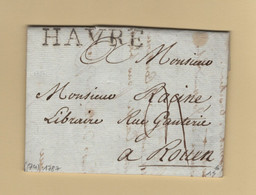 HAVRE
Monsieur
Monsieur Racine
Libraire Rue Ganterie
à Rouen